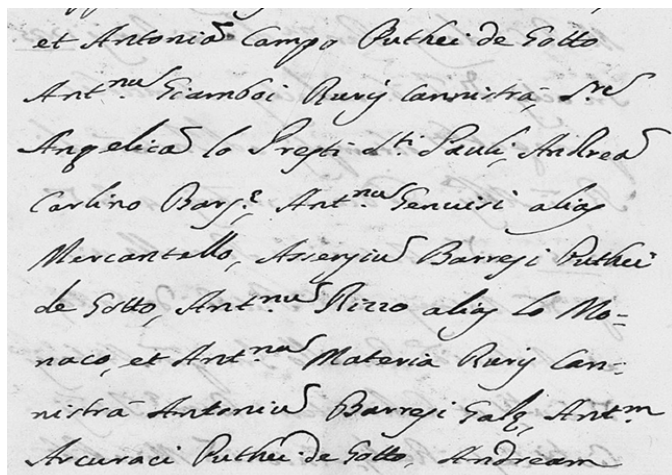 et Antoniũ Campo Puthei de Gotto
Ant.nũ Giamboi Rurij Cannistrà,
Angelicã lo Presti d.ti Pauli, Andreã
Carlino Ant.nũ Genuisi alias
Mercantello, Barresi Puthei
de Gotto, Ant.nũ Rizzo alias lo Mo=
naco, et Ant.nũ Materia Rurij Can:
nistrà Antoniũ Barresi Ant.m
Arcuraci Puthei de Gotto, Andream